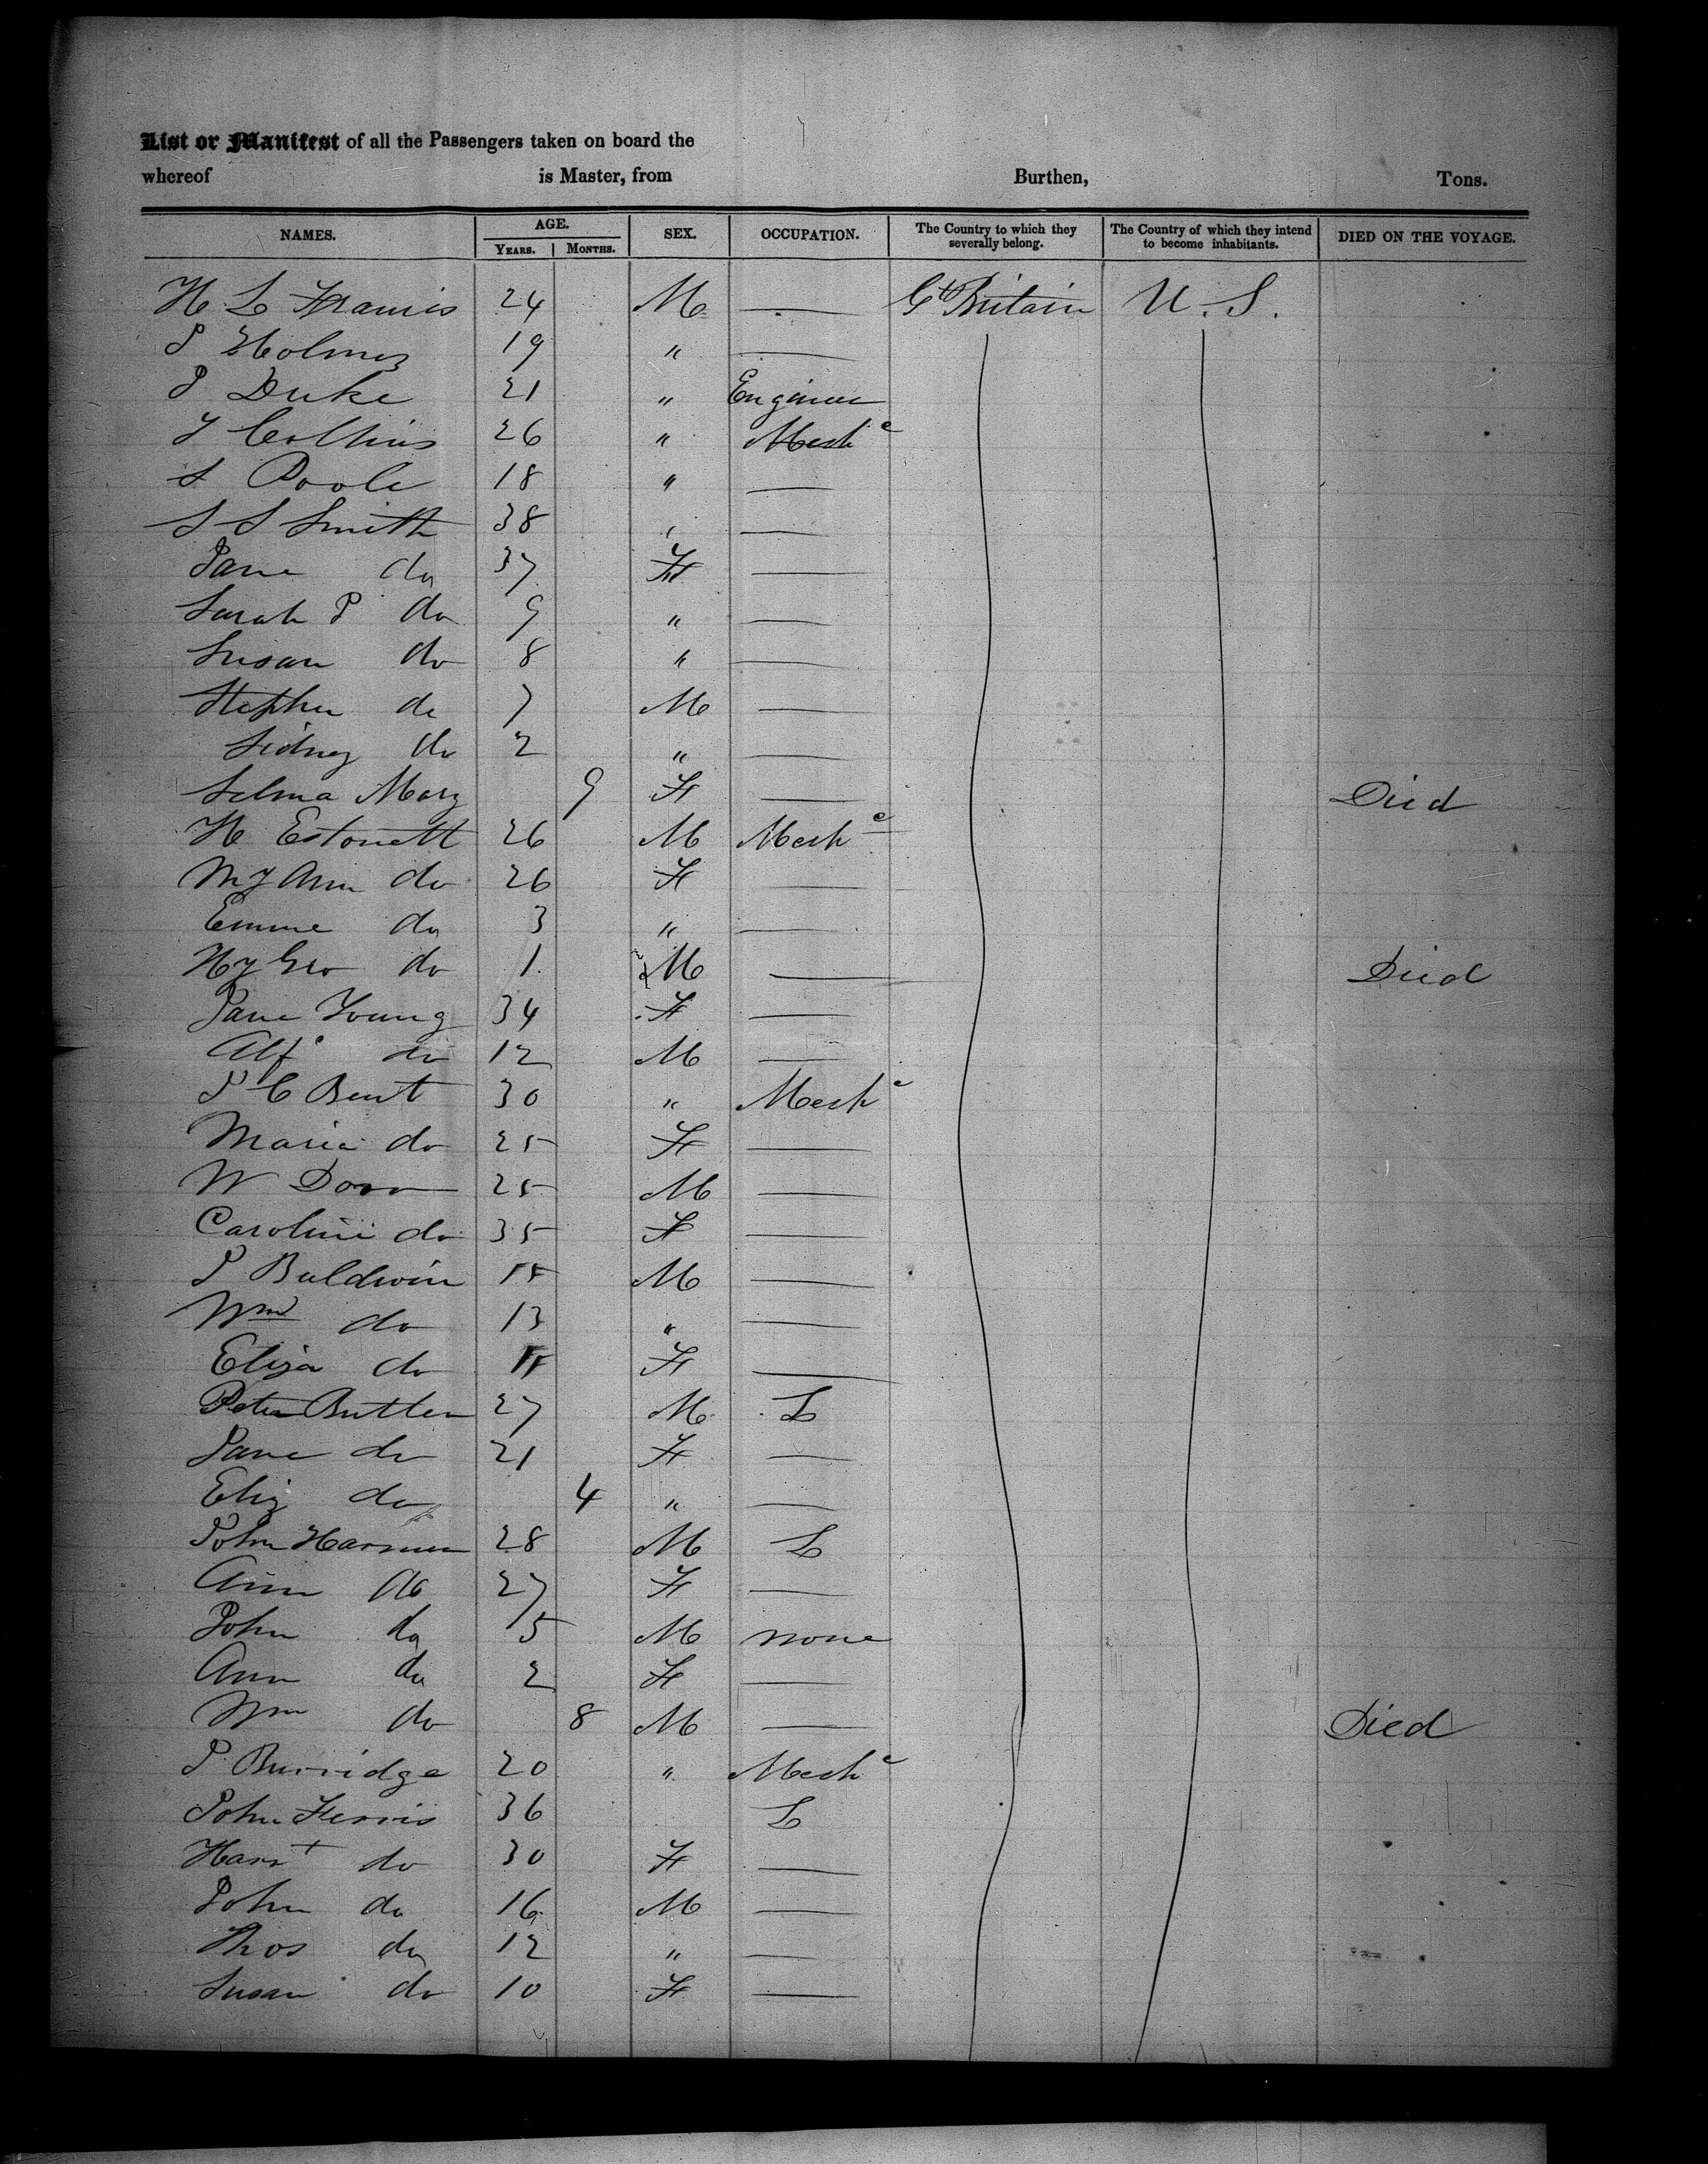 List or Manifest of all the Passengers taken on board the
whereof is Master, from Burthen, Tons.
NAMES. AGE. YEARS. MONTHS. SEX. OCCUPATION. The Country to which they severally belong. The Country of which they intend to become inhabitants. DIED ON THE VOYAGE.
H L Francis 24 M — Gt Britain U.S.
J Holmes 19 " —
J Duke 21 " Engineer
T Collins 26 " Mech c
S Poole 18 " —
S S Smith 38 " —
Jane do 37 F —
Sarah J do 9 " —
Susan do 8 " —
Stephen do 7 M —
Sidney do 2 " —
Selma Mary 9 F — Died
H Estonett 26 M Mech c
My Ann do 26 F —
Emme do 3 " —
Hy Geo do 1 M — Died
Jane Young 34 F —
Alf do 12 M —
J C Bent 30 " Mech c
Maria do 25 F —
W Dorr 25 M —
Caroline do 35 F —
J Baldwin M —
Wm do 13 " —
Eliza do F —
Peter Butler 27 M L
Jane do 21 F —
Eliz do 4 " —
John Harmen 28 M L
Ann do 27 F —
John do 5 M none
Ann do 2 F —
Wm do 8 M — Died
J Burridge 20 " Mech c
John Ferris 36 L
Hart do 30 F —
John do 16 M —
Thos do 12 " —
Susan do 10 F —